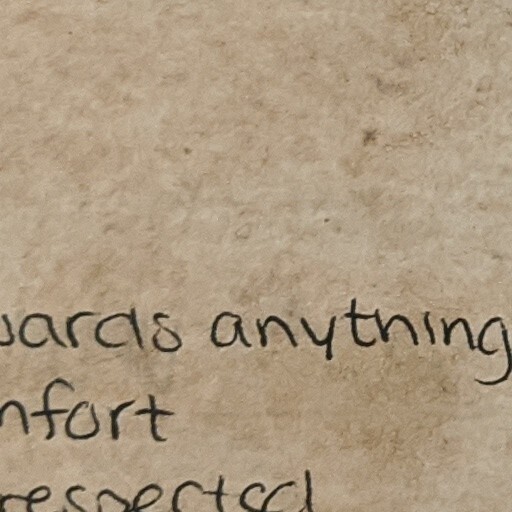 wards anything
mfort
respected